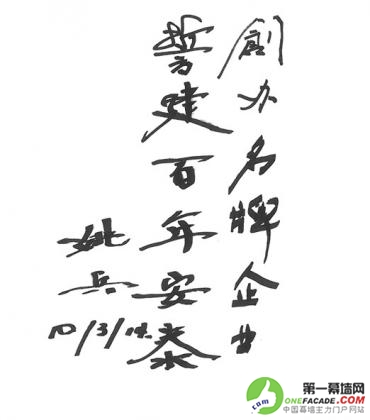 創办名牌企业
誓建百年安泰
姚兵
10/3/14.
第一幕墙网
ONEFACADE.COM
中国幕墙主力门户网站
.com